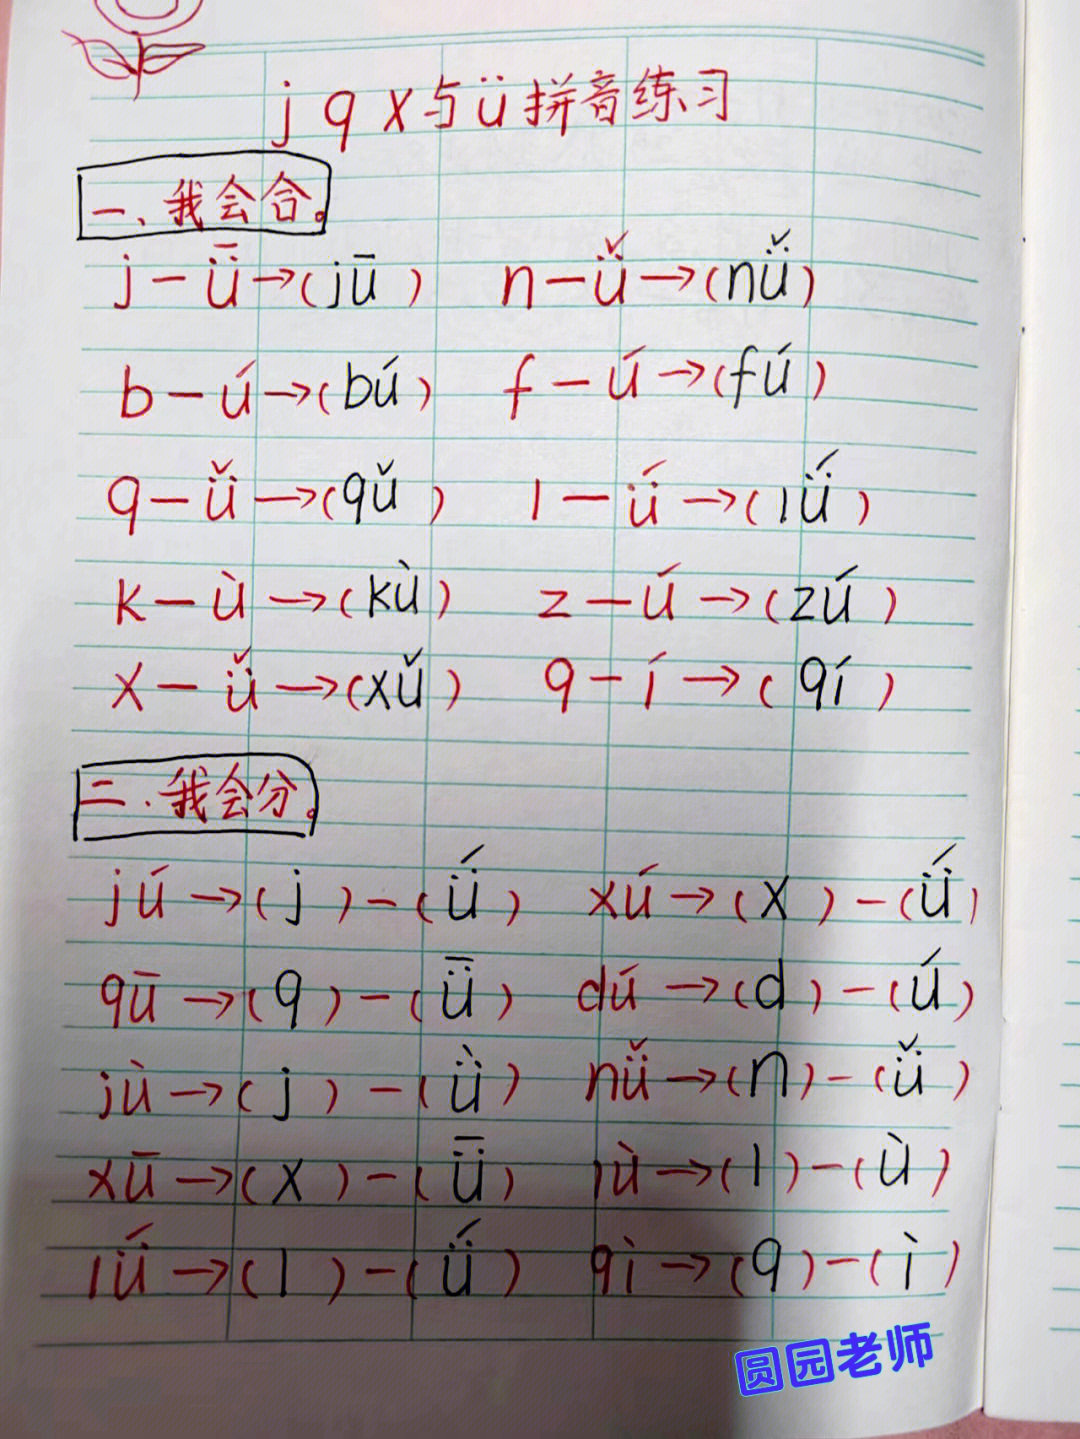 j q x与ü拼音练习
一、我会合。
j－ǖ→(jū) n－ǚ→(nǚ)
b－ú→(bú) f－ú→(fú)
q－ǚ→(qǔ) l－ǘ→(lǘ)
k－ù→(kù) z－ú→(zú)
x－ǚ→(xǔ) q－í→(qí)
二.我会分。
jú→(j)－(ǘ) xú→(x)－(ǘ)
qū→(q)－(ǖ) dú→(d)－(ú)
jù→(j)－(ǜ) nǚ→(n)－(ǚ)
xū→(x)－(ǖ) lù→(l)－(ù)
lǘ→(l)－(ǘ) qì→(q)－(ì)
圆园老师